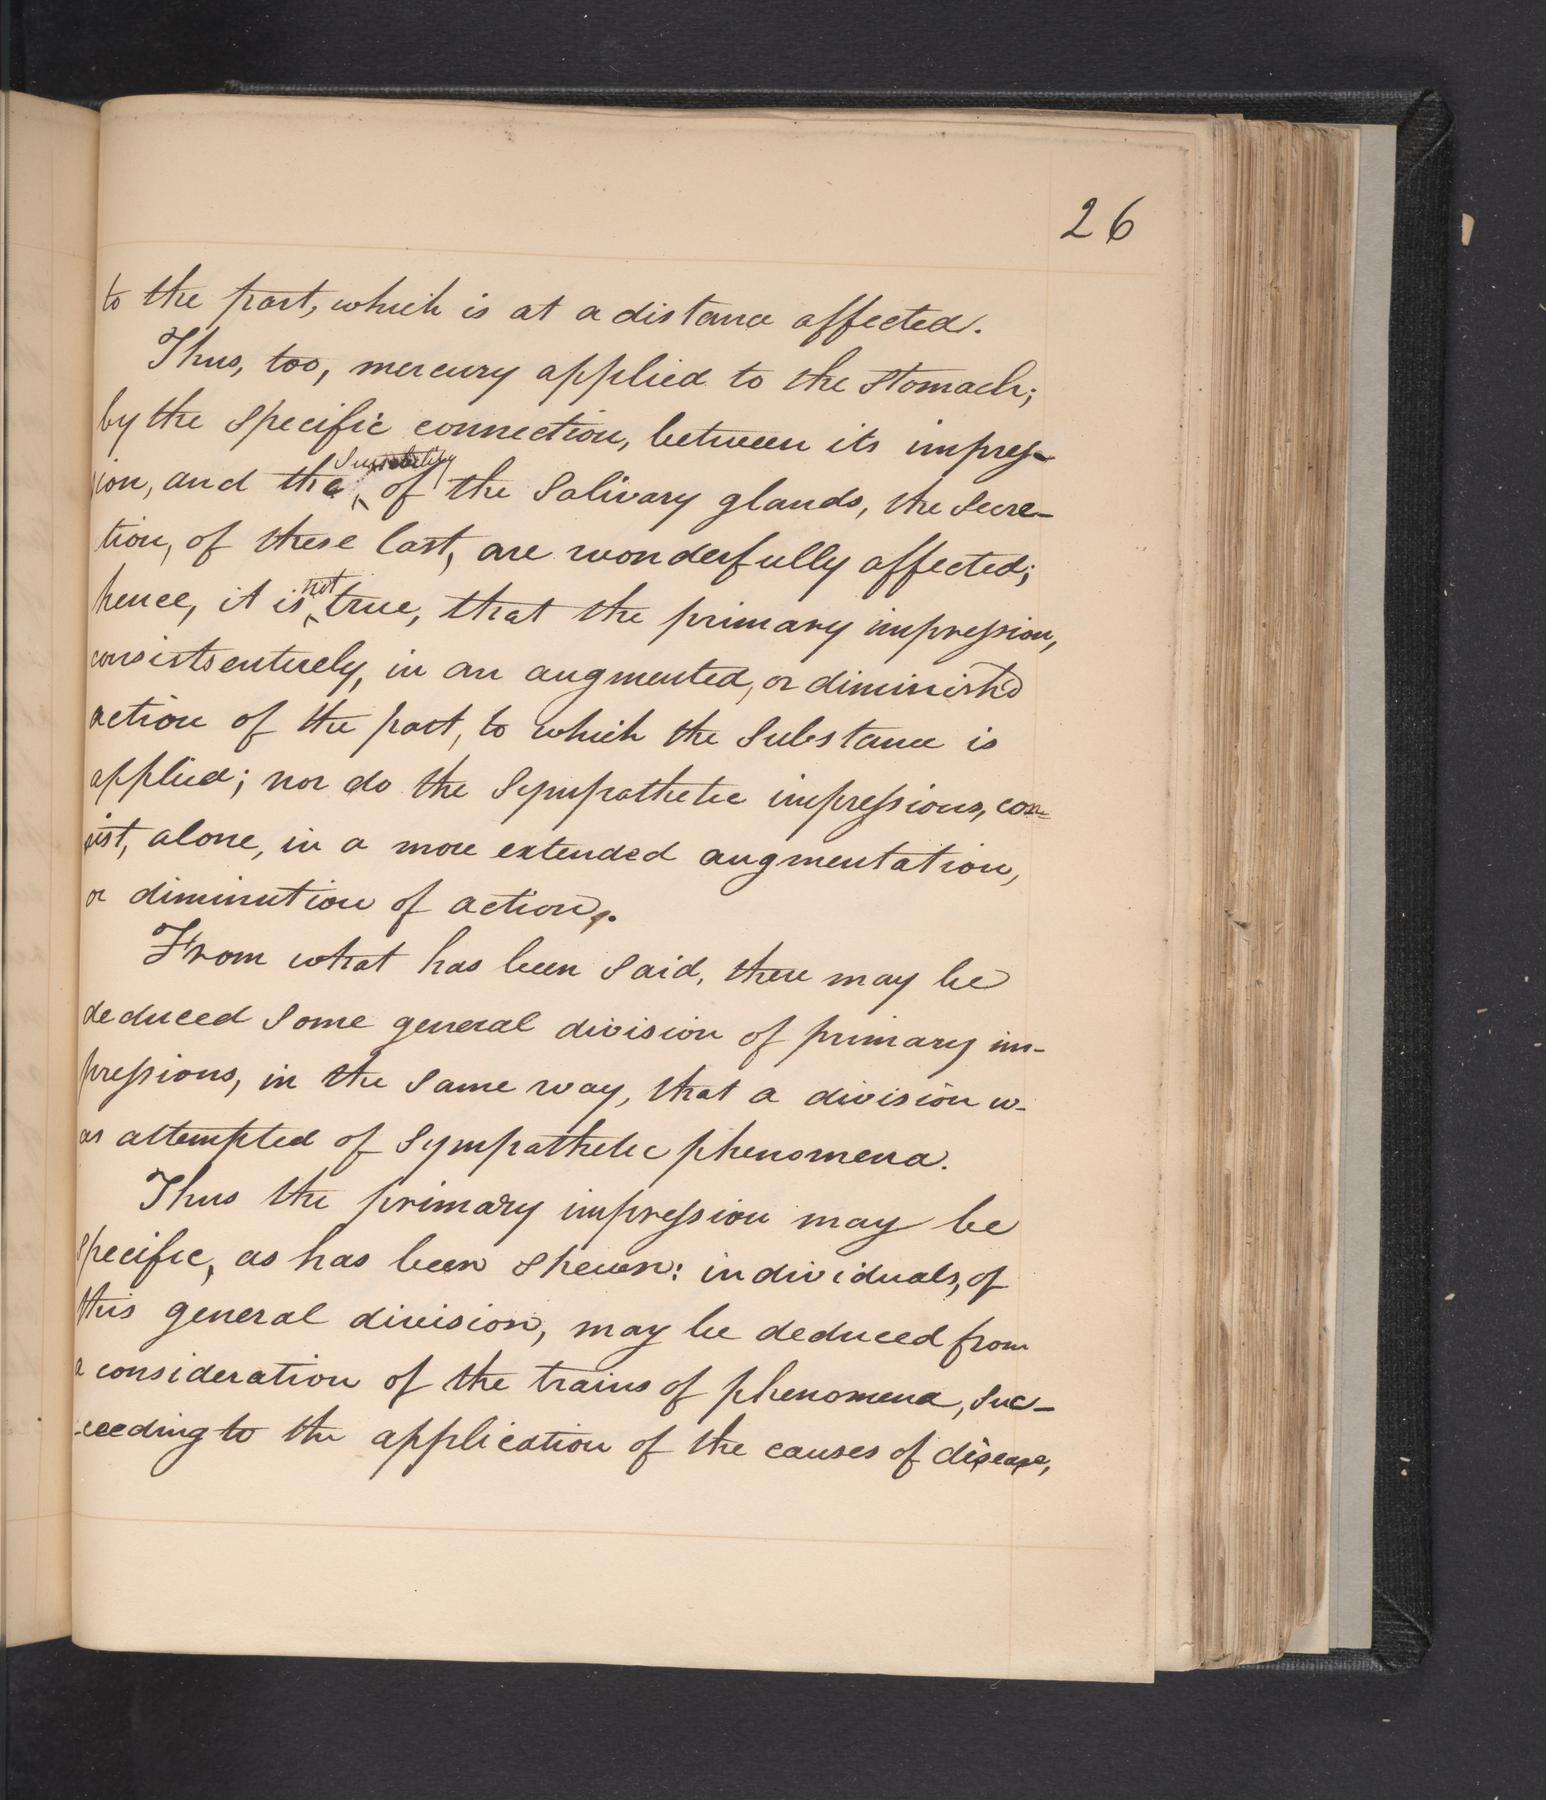 26
to the part, which is at a distance affected.
Thus, too, mercury applied to the stomach;
by the specific connection, between its impres-
sion, and the Susceptibility of the Salivary glands, the Secre-
tion, of these last, are wonderfully affected;
hence, it is not true, that the primary impression,
consists entirely, in an augmented, or diminish'd
action of the part, to which the Substance is
applied; nor do the Sympathetic impressions, con=
sist, alone, in a more extended augmentation,
or diminution of action.
From what has been Said, there may be
deduced Some general division of primary im-
pressions, in the Same way, that a division w-
as attempted of Sympathetic phenomena.
Thus the primary impression may be
Specific, as has been Shewn: individuals, of
this general division, may be deduced from
a consideration of the trains of phenomena, Suc-
ceeding to the application of the causes of disease,